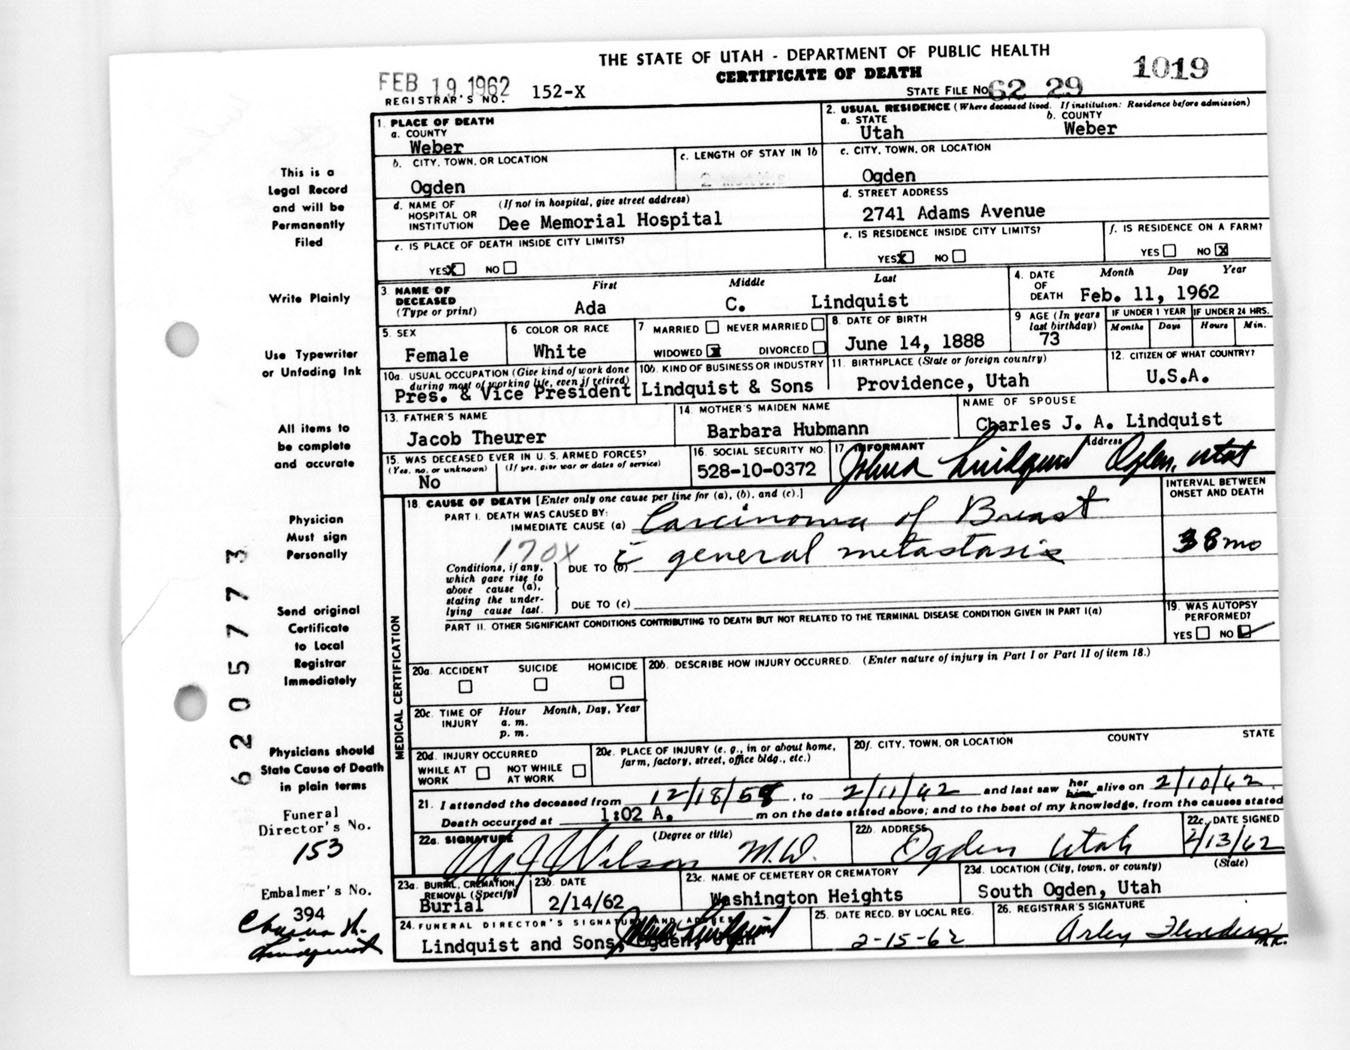 THE STATE OF UTAH - DEPARTMENT OF PUBLIC HEALTH
CERTIFICATE OF DEATH
1019
FEB 19 1962
REGISTRAR'S NO. 152-X
STATE FILE NO. 62 29
1. PLACE OF DEATH
a. COUNTY
Weber
2. USUAL RESIDENCE (Where deceased lived. If institution: Residence before admission)
a. STATE
Utah
b. COUNTY
Weber
b. CITY, TOWN, OR LOCATION
Ogden
c. LENGTH OF STAY IN 1b
c. CITY, TOWN, OR LOCATION
Ogden
d. NAME OF HOSPITAL OR INSTITUTION (If not in hospital, give street address)
Dee Memorial Hospital
d. STREET ADDRESS
2741 Adams Avenue
e. IS PLACE OF DEATH INSIDE CITY LIMITS?
YES X NO
e. IS RESIDENCE INSIDE CITY LIMITS?
YES X NO
f. IS RESIDENCE ON A FARM?
YES NO X
3. NAME OF DECEASED (Type or print)
First Middle Last
Ada C. Lindquist
4. DATE OF DEATH Month Day Year
Feb. 11, 1962
5. SEX
Female
6 COLOR OR RACE
White
7 MARRIED NEVER MARRIED
WIDOWED X DIVORCED
8. DATE OF BIRTH
June 14, 1888
9 AGE (In years last birthday)
73
IF UNDER 1 YEAR
Months Days
IF UNDER 24 HRS.
Hours Min.
10a. USUAL OCCUPATION (Give kind of work done during most of working life, even if retired)
Pres. & Vice President
10b. KIND OF BUSINESS OR INDUSTRY
Lindquist & Sons
11. BIRTHPLACE (State or foreign country)
Providence, Utah
12. CITIZEN OF WHAT COUNTRY?
U.S.A.
13. FATHER'S NAME
Jacob Theurer
14. MOTHER'S MAIDEN NAME
Barbara Hubmann
NAME OF SPOUSE
Charles J. A. Lindquist
15. WAS DECEASED EVER IN U.S. ARMED FORCES?
(Yes, no, or unknown) (If yes, give war or dates of service)
No
16. SOCIAL SECURITY NO.
528-10-0372
17 INFORMANT Address
Lindquist Ogden, Utah
MEDICAL CERTIFICATION
18. CAUSE OF DEATH [Enter only one cause per line for (a), (b), and (c).]
INTERVAL BETWEEN ONSET AND DEATH
PART I. DEATH WAS CAUSED BY:
IMMEDIATE CAUSE (a) Carcinoma of Breast
170X
c general metastasis
38 mo
Conditions, if any, which gave rise to above cause (a), stating the underlying cause last.
DUE TO (b)
DUE TO (c)
PART II. OTHER SIGNIFICANT CONDITIONS CONTRIBUTING TO DEATH BUT NOT RELATED TO THE TERMINAL DISEASE CONDITION GIVEN IN PART I(a)
19. WAS AUTOPSY PERFORMED?
YES NO
20a. ACCIDENT SUICIDE HOMICIDE
20b. DESCRIBE HOW INJURY OCCURRED. (Enter nature of injury in Part I or Part II of item 18.)
20c. TIME OF INJURY Hour Month, Day, Year
a. m.
p. m.
20d. INJURY OCCURRED
WHILE AT WORK NOT WHILE AT WORK
20e. PLACE OF INJURY (e. g., in or about home, farm, factory, street, office bldg., etc.)
20f. CITY, TOWN, OR LOCATION COUNTY STATE
21. I attended the deceased from 12/18/58, to 2/11/62 and last saw her him alive on 2/10/62.
Death occurred at 1:02 A. m on the date stated above; and to the best of my knowledge, from the causes stated
22a. SIGNATURE (Degree or title)
Wilson M.D.
22b. ADDRESS
Ogden Utah
22c. DATE SIGNED
2/13/62
23a. BURIAL, CREMATION, REMOVAL (Specify)
Burial
23b. DATE
2/14/62
23c. NAME OF CEMETERY OR CREMATORY
Washington Heights
23d. LOCATION (City, town, or county) (State)
South Ogden, Utah
24. FUNERAL DIRECTOR'S SIGNATURE AND ADDRESS
Lindquist and Sons, Ogden, Utah
25. DATE RECD. BY LOCAL REG.
2-15-62
26. REGISTRAR'S SIGNATURE
This is a
Legal Record
and will be
Permanently
Filed
Write Plainly
Use Typewriter
or Unfading Ink
All items to
be complete
and accurate
Physician
Must sign
Personally
Send original
Certificate
to Local
Registrar
Immediately
Physicians should
State Cause of Death
in plain terms
Funeral
Director's No.
153
Embalmer's No.
394
Lindquist
6205773